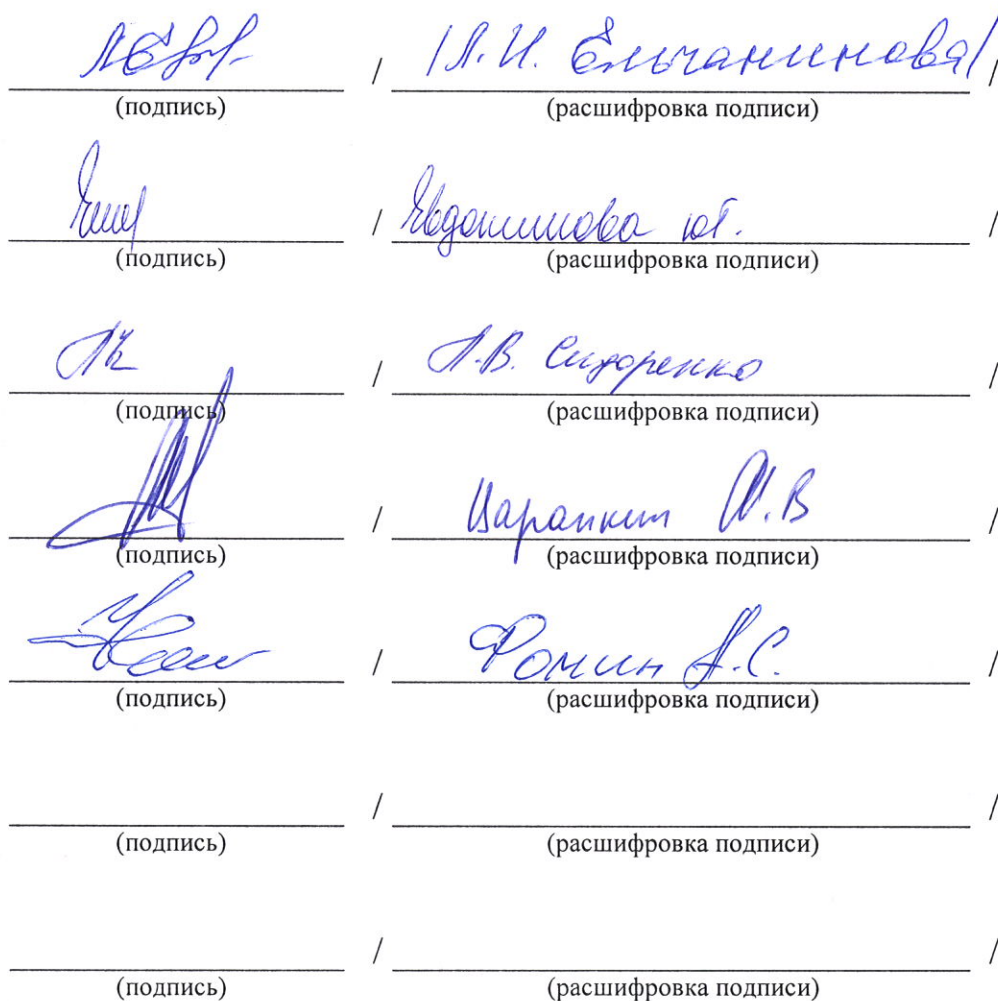 / /Л.И. Ельчанинова/ /
(подпись) (расшифровка подписи)
/ Евдокимова /
(подпись) (расшифровка подписи)
/ Л.В. Сидоренко /
(подпись) (расшифровка подписи)
/ Царапкин М.В /
(подпись) (расшифровка подписи)
/ Фомин А.С. /
(подпись) (расшифровка подписи)
/ /
(подпись) (расшифровка подписи)
/ /
(подпись) (расшифровка подписи)